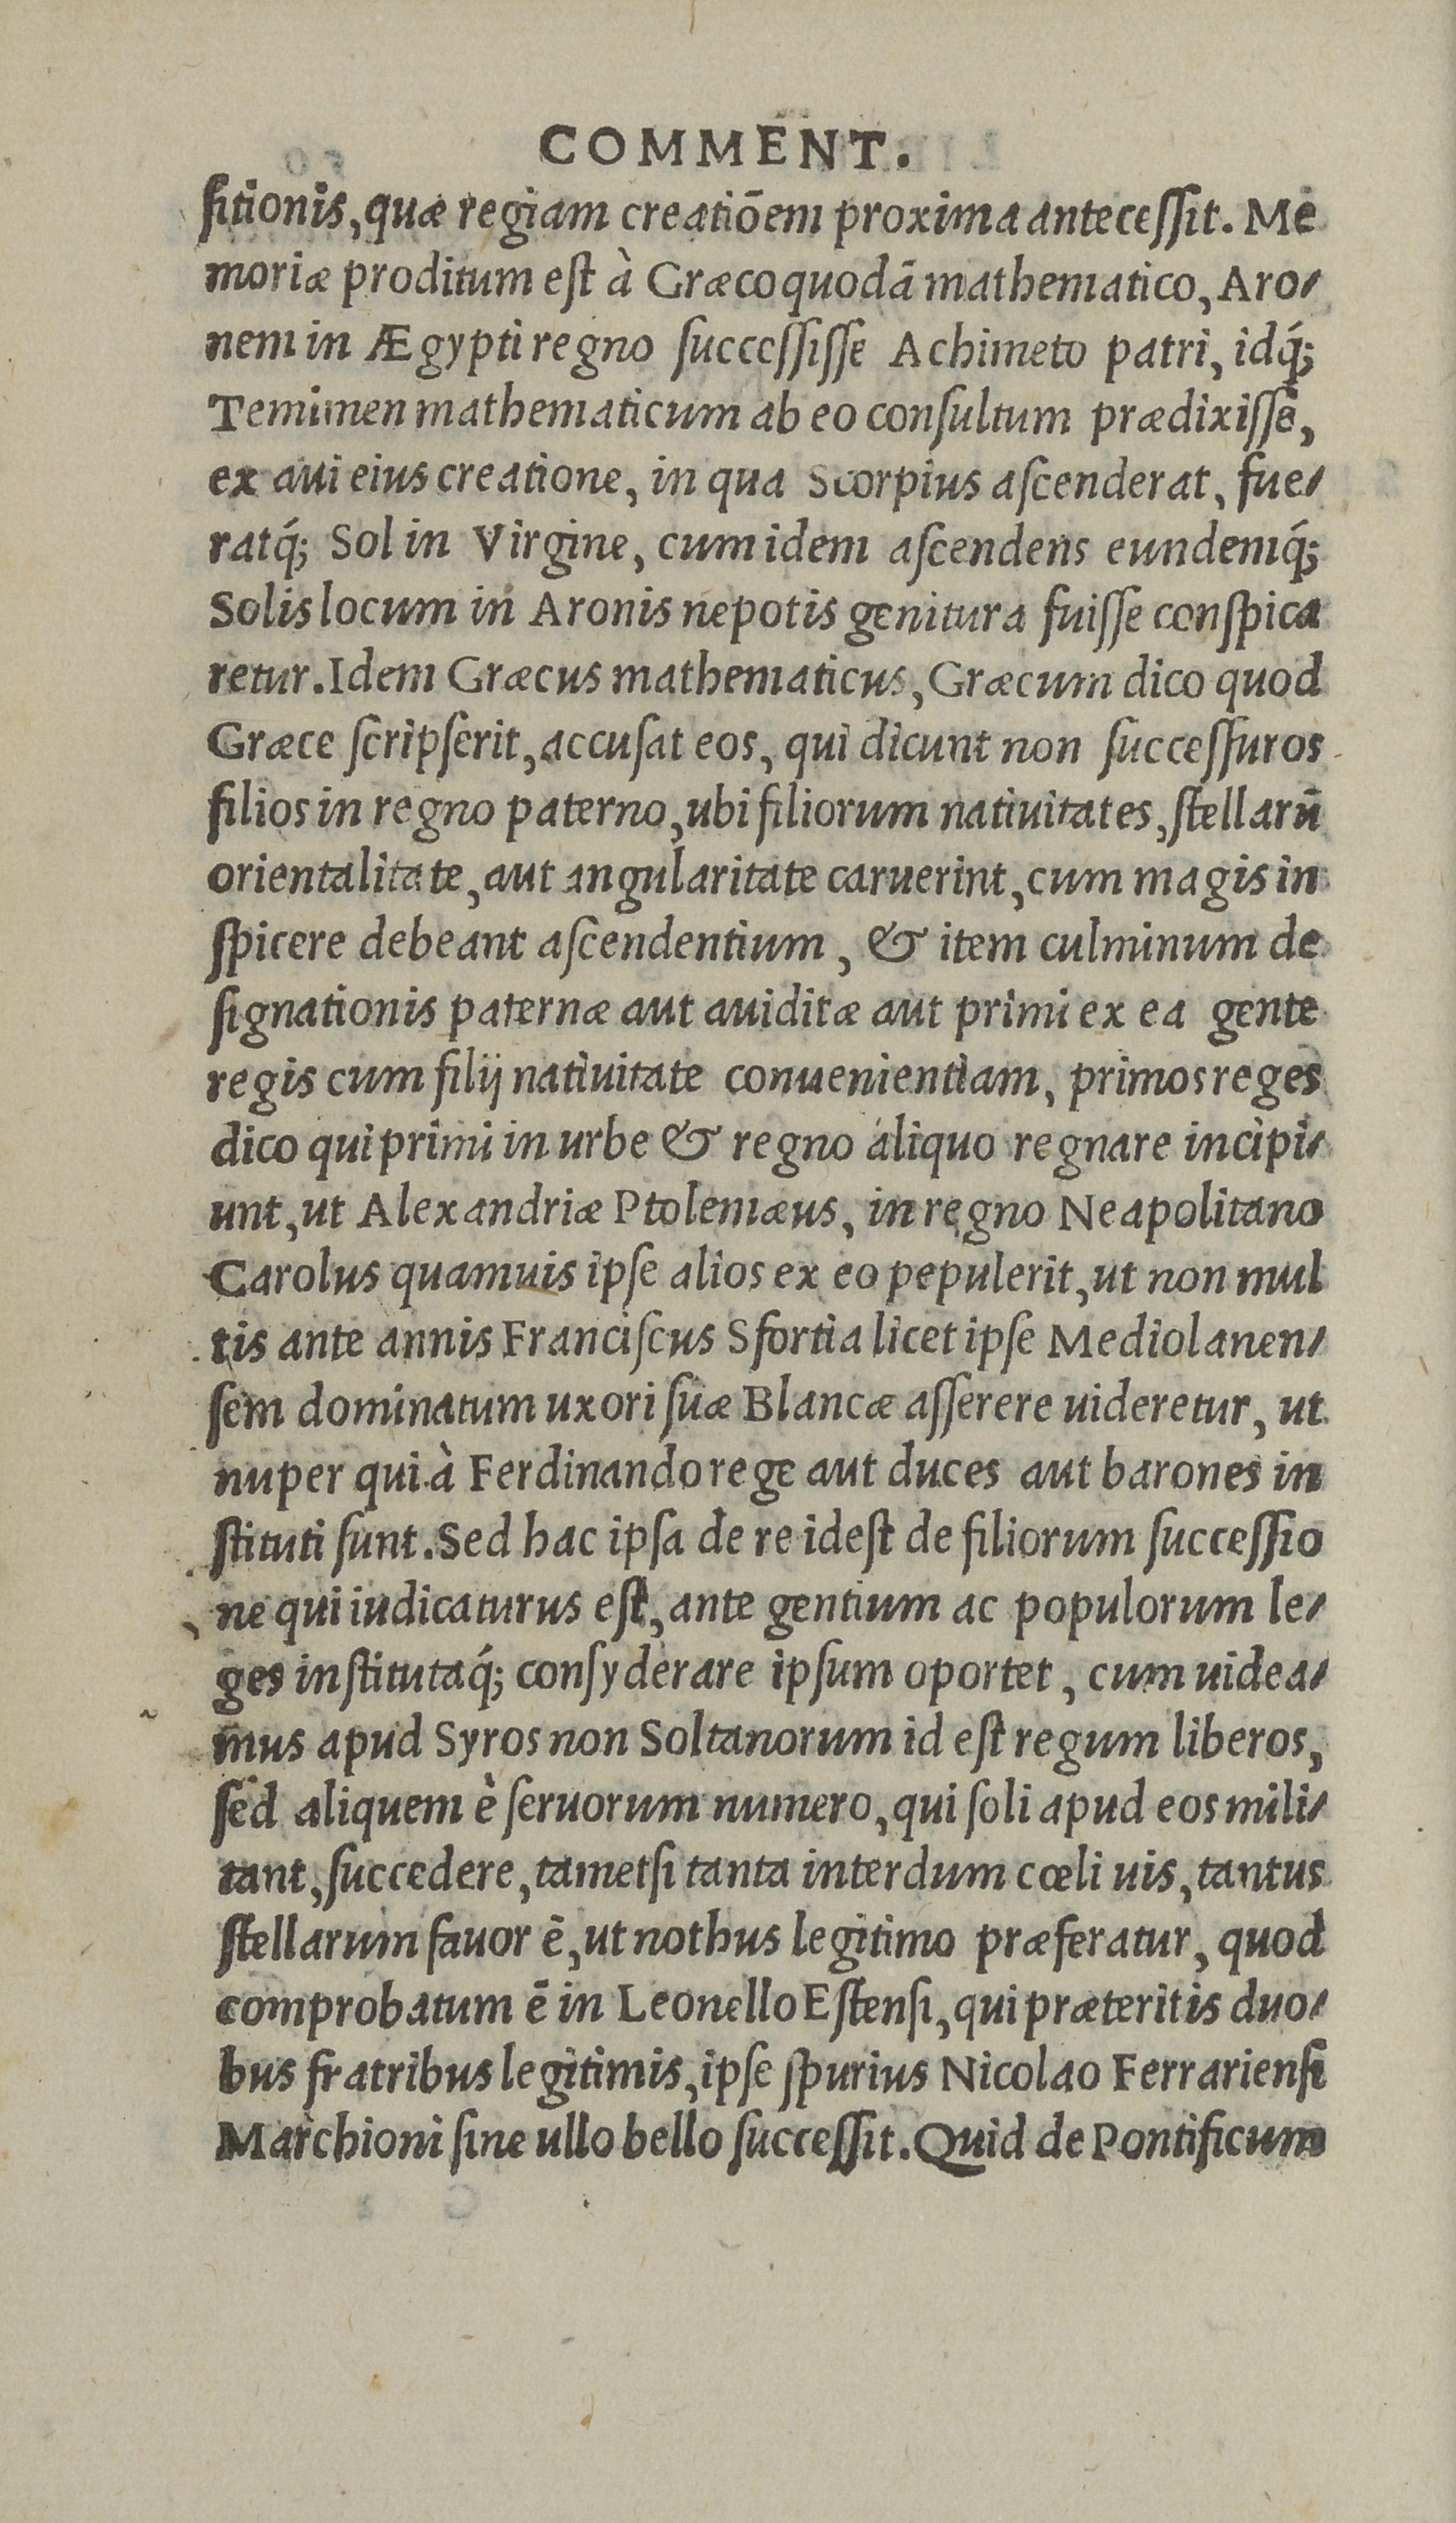 COMMENT.
ſitionis, quæ regiam creatiōem proxima anteceſſit. Me
moriæ proditum eſt à Græco quodā mathematico, Aro-
nem in Ægypti regno ſucceſſiſſe Achimeto patri, idq́;
Temimen mathematicum ab eo conſultum prædixiſſe,
ex aui eius creatione, in qua Scorpius aſcenderat, fue-
ratq́; Sol in Virgine, cum idem aſcendens eundemq́;
Solis locum in Aronis nepotis genitura fuiſſe conſpica
retur. Idem Græcus mathematicus, Græcum dico quod
Græce ſcripſerit, accuſat eos, qui dicunt non ſucceſſuros
filios in regno paterno, ubi filiorum natiuitates, ſtellarū
orientalitate, aut angularitate caruerint, cum magis in
ſpicere debeant aſcendentium, & item culminum de
ſignationis paternæ aut auiditæ aut primi ex ea gente
regis cum filij natiuitate conuenientiam, primos reges
dico qui primi in urbe & regno aliquo regnare incipi-
unt, ut Alexandriæ Ptolemæus, in regno Neapolitano
Carolus quamuis ipſe alios ex eo pepulerit, ut non mul
tis ante annis Franciſcus Sfortia licet ipſe Mediolanen-
ſem dominatum uxori ſuæ Blancæ aſſerere uideretur, ut
nuper qui à Ferdinando rege aut duces aut barones in
ſtituti ſunt. Sed hac ipſa de re ideſt de filiorum ſucceſſio
ne qui iudicaturus eſt, ante gentium ac populorum le-
ges inſtitutaq́; conſyderare ipſum oportet, cum uidea-
mus apud Syros non Soltanorum id eſt regum liberos,
ſed aliquem è ſeruorum numero, qui ſoli apud eos mili-
tant, ſuccedere, tametſi tanta interdum cœli uis, tantus
ſtellarum fauor ē, ut nothus legitimo præferatur, quod
comprobatum ē in Leonello Eſtenſi, qui præteritis duo-
bus fratribus legitimis, ipſe ſpurius Nicolao Ferrarienſi
Marchioni ſine ullo bello ſucceſſit. Quid de Pontificum